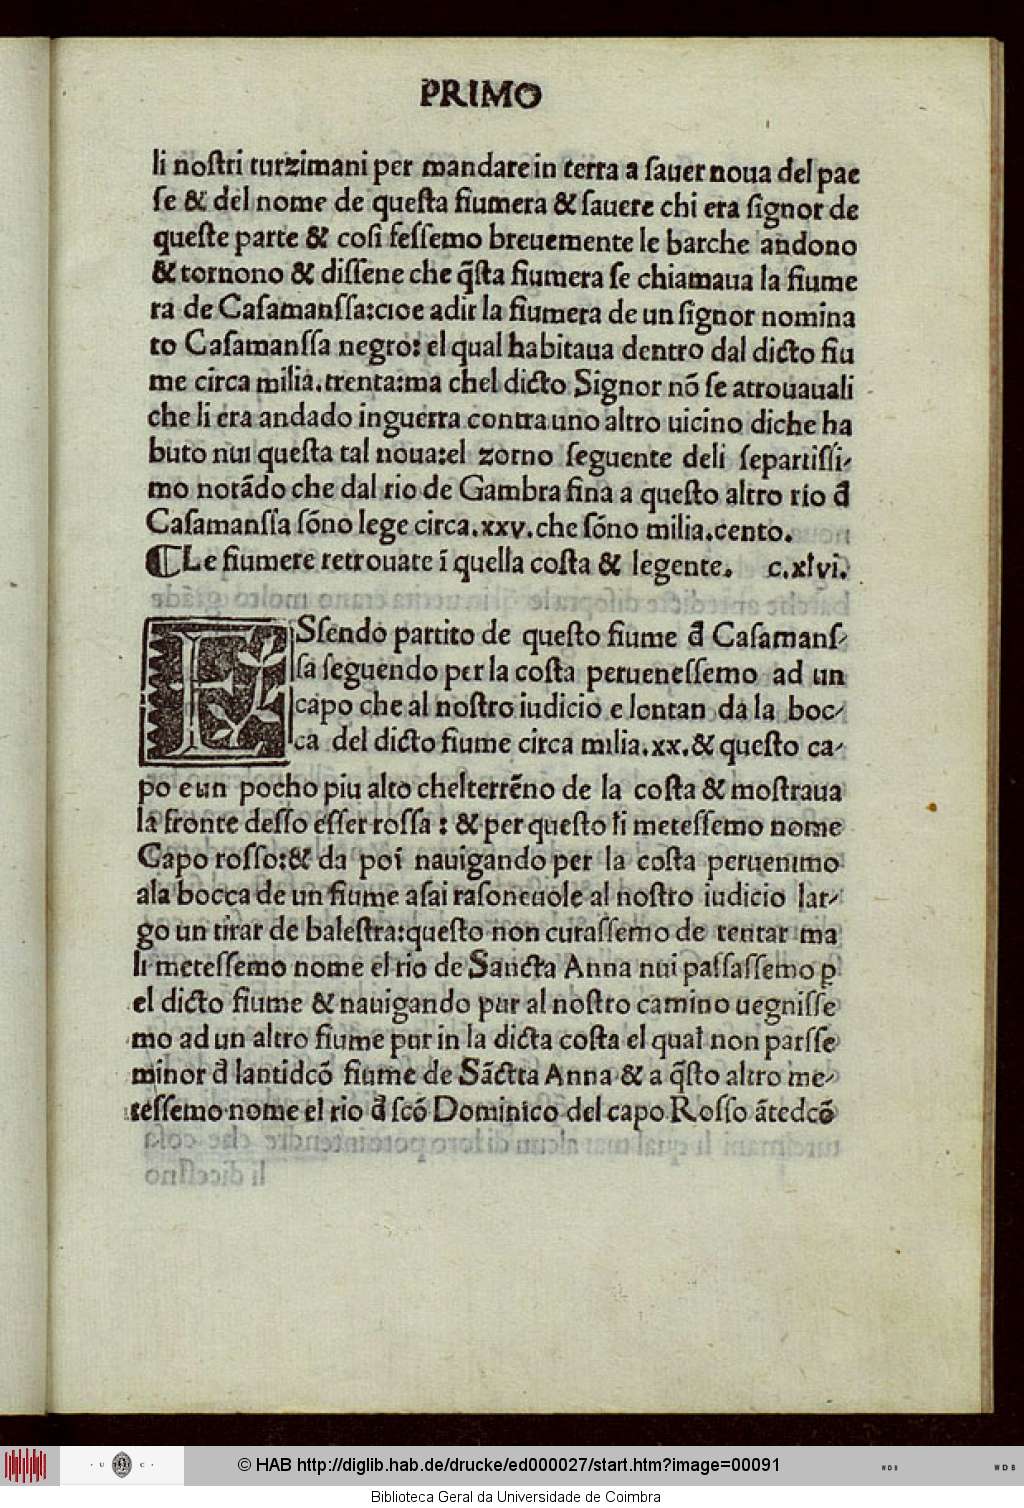 PRIMO
li noſtri turzimani per mandare in terra a ſauer noua del pae
ſe & del nome de queſta fiumera & ſauere chi era ſignor de
queſte parte & coſi feſſemo breuemente le barche andono
& tornono & diſſene che q̃ſta fiumera ſe chiamaua la fiume
ra de Caſamanſſa:cioe adir la fiumera de un ſignor nomina
to Caſamanſſa negro: el qual habitaua dentro dal dicto fiu
me circa milia.trenta:ma chel dicto Signor nõ ſe atrouauali
che li era andado inguerra contra uno altro uicino diche ha
buto nui queſta tal noua:el zorno ſeguente deli ſepartiſſi-
mo notãdo che dal rio de Gambra fina a queſto altro rio d̄
Caſamanſſa ſõno lege circa.xxv.che ſõno milia.cento.
¶Le fiumere retrouate ĩ quella coſta & legente. c.xlvi.
ESſendo partito de queſto fiume d̄ Caſamanſ-
ſa ſeguendo per la coſta perueneſſemo ad un
capo che al noſtro iudicio e lontan da la boc-
ca del dicto fiume circa milia.xx.& queſto ca-
po e un pocho piu alto chelterrẽno de la coſta & moſtraua
la fronte deſſo eſſer roſſa : & per queſto li meteſſemo nome
Capo roſſo:& da poi nauigando per la coſta peruenimo
ala bocca de un fiume aſai raſoneuole al noſtro iudicio lar-
go un tirar de baleſtra:queſto non curaſſemo de tentar ma
li meteſſemo nome el rio de Sancta Anna nui paſſaſſemo ꝑ
el dicto fiume & nauigando pur al noſtro camino uegniſſe
mo ad un altro fiume pur in la dicta coſta el qual non parſſe
minor d̄ lantidcõ fiume de Sãctta Anna & a q̃ſto altro me-
teſſemo nome el rio d̄ ſcõ Dominico del capo Roſſo ãtedcõ
© HAB http://diglib.hab.de/drucke/ed000027/start.htm?image=00091
Biblioteca Geral da Universidade de Coimbra